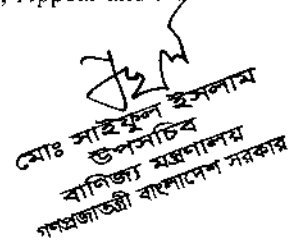 Appeal and
মোঃ সাইফুল ইসলাম
উপসচিব
বাণিজ্য মন্ত্রণালয়
গণপ্রজাতন্ত্রী বাংলাদেশ সরকার